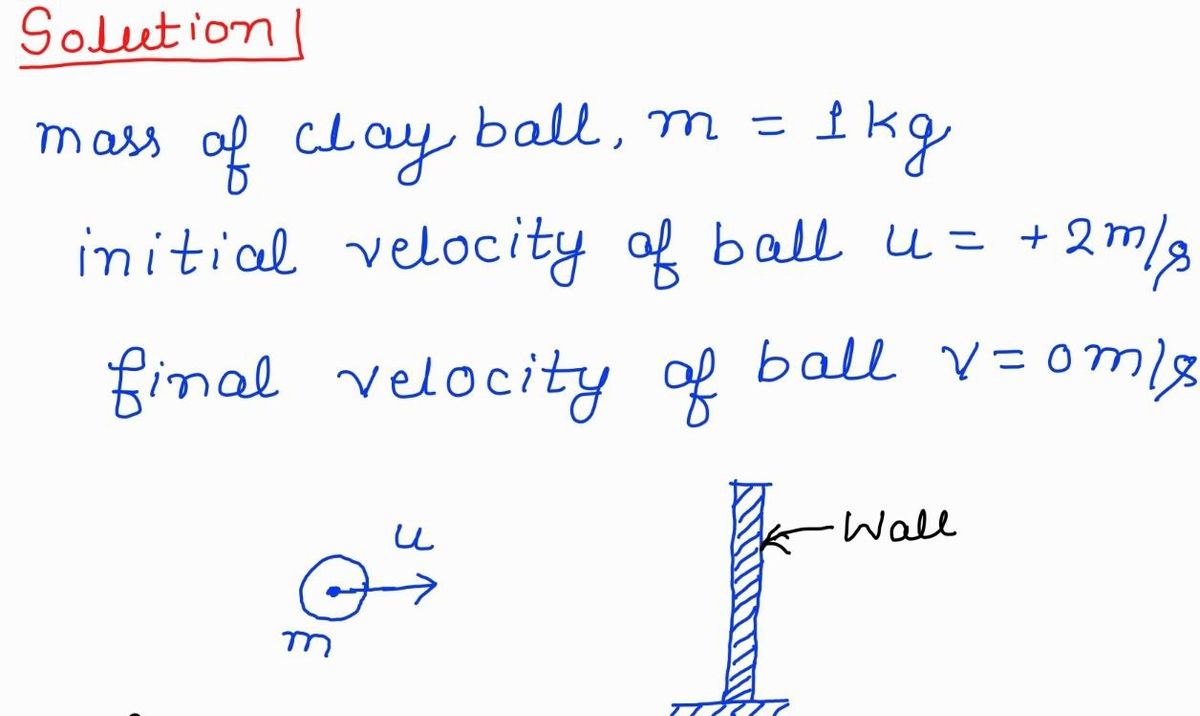 Solution
mass of clay ball, m = 1kg
initial velocity of ball u = +2m/s
final velocity of ball v = 0m/s
u
Wall
m